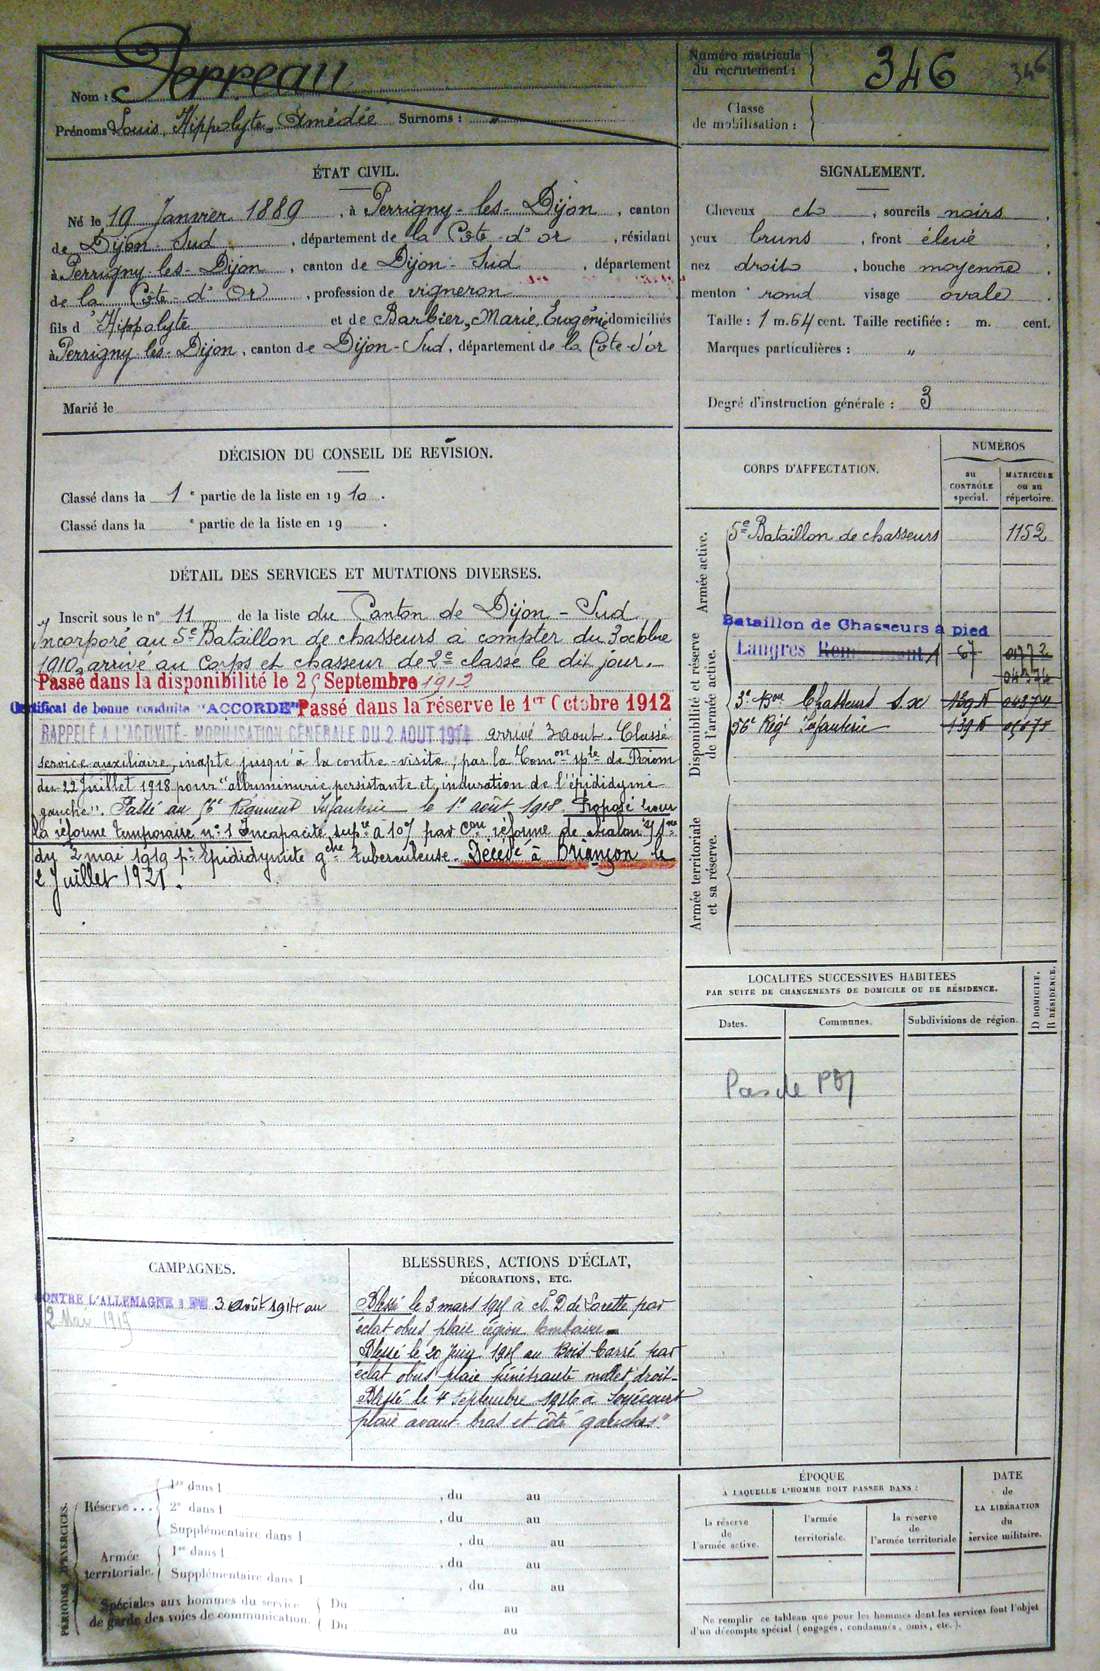 Nom : Perreau
Prénoms Louis, Hippolyte, Amédée Surnoms : "
Numéro matricule
du recrutement : 346 346
Classe
de mobilisation :
ÉTAT CIVIL.
Né le 19 Janvier 1889, à Perrigny-les-Dijon, canton
de Dijon-Sud, département de la Côte-d'or, résidant
à Perrigny-les-Dijon, canton de Dijon-Sud, département
de la Côte-d'Or, profession de vigneron
fils d'Hippolyte et de Barbier, Marie, Eugénie domiciliés
à Perrigny-les-Dijon, canton de Dijon-Sud, département de la Côte-d'or
Marié le
SIGNALEMENT.
Cheveux ch, sourcils noirs,
yeux bruns, front élevé,
nez droit, bouche moyenne,
menton rond visage ovale.
Taille : 1 m. 64 cent. Taille rectifiée : m. cent.
Marques particulières : "
Degré d'instruction générale : 3
DÉCISION DU CONSEIL DE REVISION.
Classé dans la 1e partie de la liste en 1910.
Classé dans la e partie de la liste en 19 .
DÉTAIL DES SERVICES ET MUTATIONS DIVERSES.
Inscrit sous le n° 11 de la liste du Canton de Dijon-Sud
Incorporé au 5e Bataillon de chasseurs à compter du 3 octobre
1910, arrivé au Corps et chasseur de 2e classe le dit jour.
Passé dans la disponibilité le 25 Septembre 1912
Certificat de bonne conduite "ACCORDÉ" Passé dans la réserve le 1er Octobre 1912
RAPPELÉ A L'ACTIVITÉ - MOBILISATION GÉNÉRALE DU 2 AOUT 1914 arrivé 3 aout. Classé
service auxiliaire, inapte jusqu'à la contre-visite, par la Comon sple de Riom
du 22 Juillet 1918 pour "albuminurie persistante et induration de l'épididyme
gauche". Passé au 56e Régiment Infanterie le 1er août 1918. Proposé pour
la réforme temporaire n° 1 Incapacité supre à 10% par Con réforme de Chalon s/ Sne
du 2 mai 1919 pr Epididymite gche tuberculeuse. Décédé à Briançon le
2 Juillet 1921.
CORPS D'AFFECTATION.
NUMÉROS
au
CONTRÔLE
spécial.
MATRICULE
ou au
répertoire.
Armée active.
5e Bataillon de chasseurs 1152
Disponibilité et réserve
de l'armée active.
Bataillon de Chasseurs à pied
Langres 67
3e Bon Chasseurs
56e Régt Infanterie
Armée territoriale
et sa réserve.
LOCALITÉS SUCCESSIVES HABITÉES
PAR SUITE DE CHANGEMENTS DE DOMICILE OU DE RÉSIDENCE.
D DOMICILE.
R RÉSIDENCE.
Dates.
Communes.
Subdivisions de région.
Pas de
CAMPAGNES.
CONTRE L'ALLEMAGNE : DU 3 Août 1914 au
2 Mai 1919
BLESSURES, ACTIONS D'ÉCLAT,
DÉCORATIONS, ETC.
Blessé le 3 mars 1915 à N. D de Lorette par
éclat obus plaie région lombaire
Blessé le 20 Juin 1915 au Bois Carré par
éclat obus plaie pénétrante mollet droit
Blessé le 4 septembre 1916 à Soyécourt
plaie avant bras et côté gauches"
PÉRIODES D'EXERCICES.
Réserve ...
1re dans l , du au
2e dans l , du au
Supplémentaire dans l , du au
Armée
territoriale.
1re dans l , du au
Supplémentaire dans l , du au
Spéciales aux hommes du service
de garde des voies de communication.
Du au
Du au
ÉPOQUE
A LAQUELLE L'HOMME DOIT PASSER DANS :
la réserve
de
l'armée active.
l'armée
territoriale.
la réserve
de
l'armée territoriale
DATE
de
LA LIBÉRATION
du
service militaire.
Ne remplir ce tableau que pour les hommes dont les services font l'objet
d'un décompte spécial (engagés, condamnés, omis, etc.).